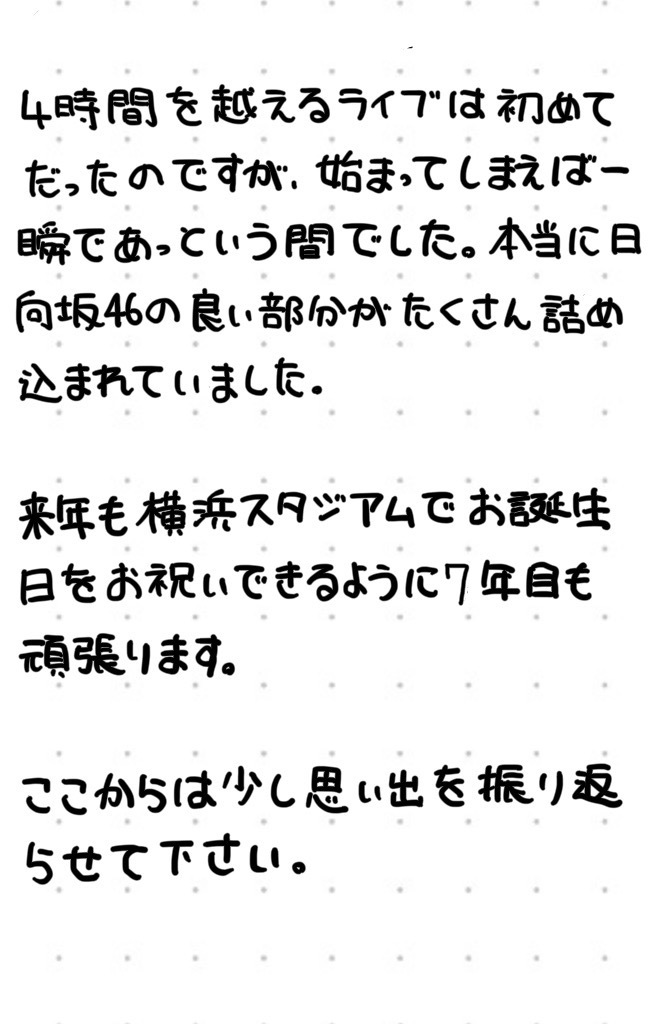 4時間を越えるライブは初めて
だったのですが、始まってしまえば一
瞬であっという間でした。本当に日
向坂46の良い部分がたくさん詰め
込まれていました。
来年も横浜スタジアムでお誕生
日をお祝いできるように7年目も
頑張ります。
ここからは少し思い出を振り返
らせて下さい。